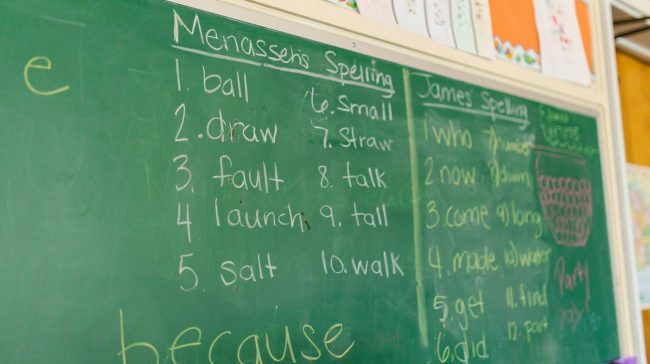 e
Menasseh's Spelling
1. ball
2. draw
3. fault
4 launch
5 salt
6. small
7. straw
8. talk
9. tall
10. walk
James' Spelling
1 who
2. now
3. come
4. made
5. get
6. did
7) number
8) down
9) long
10) water
11. find
12. part
because
Party